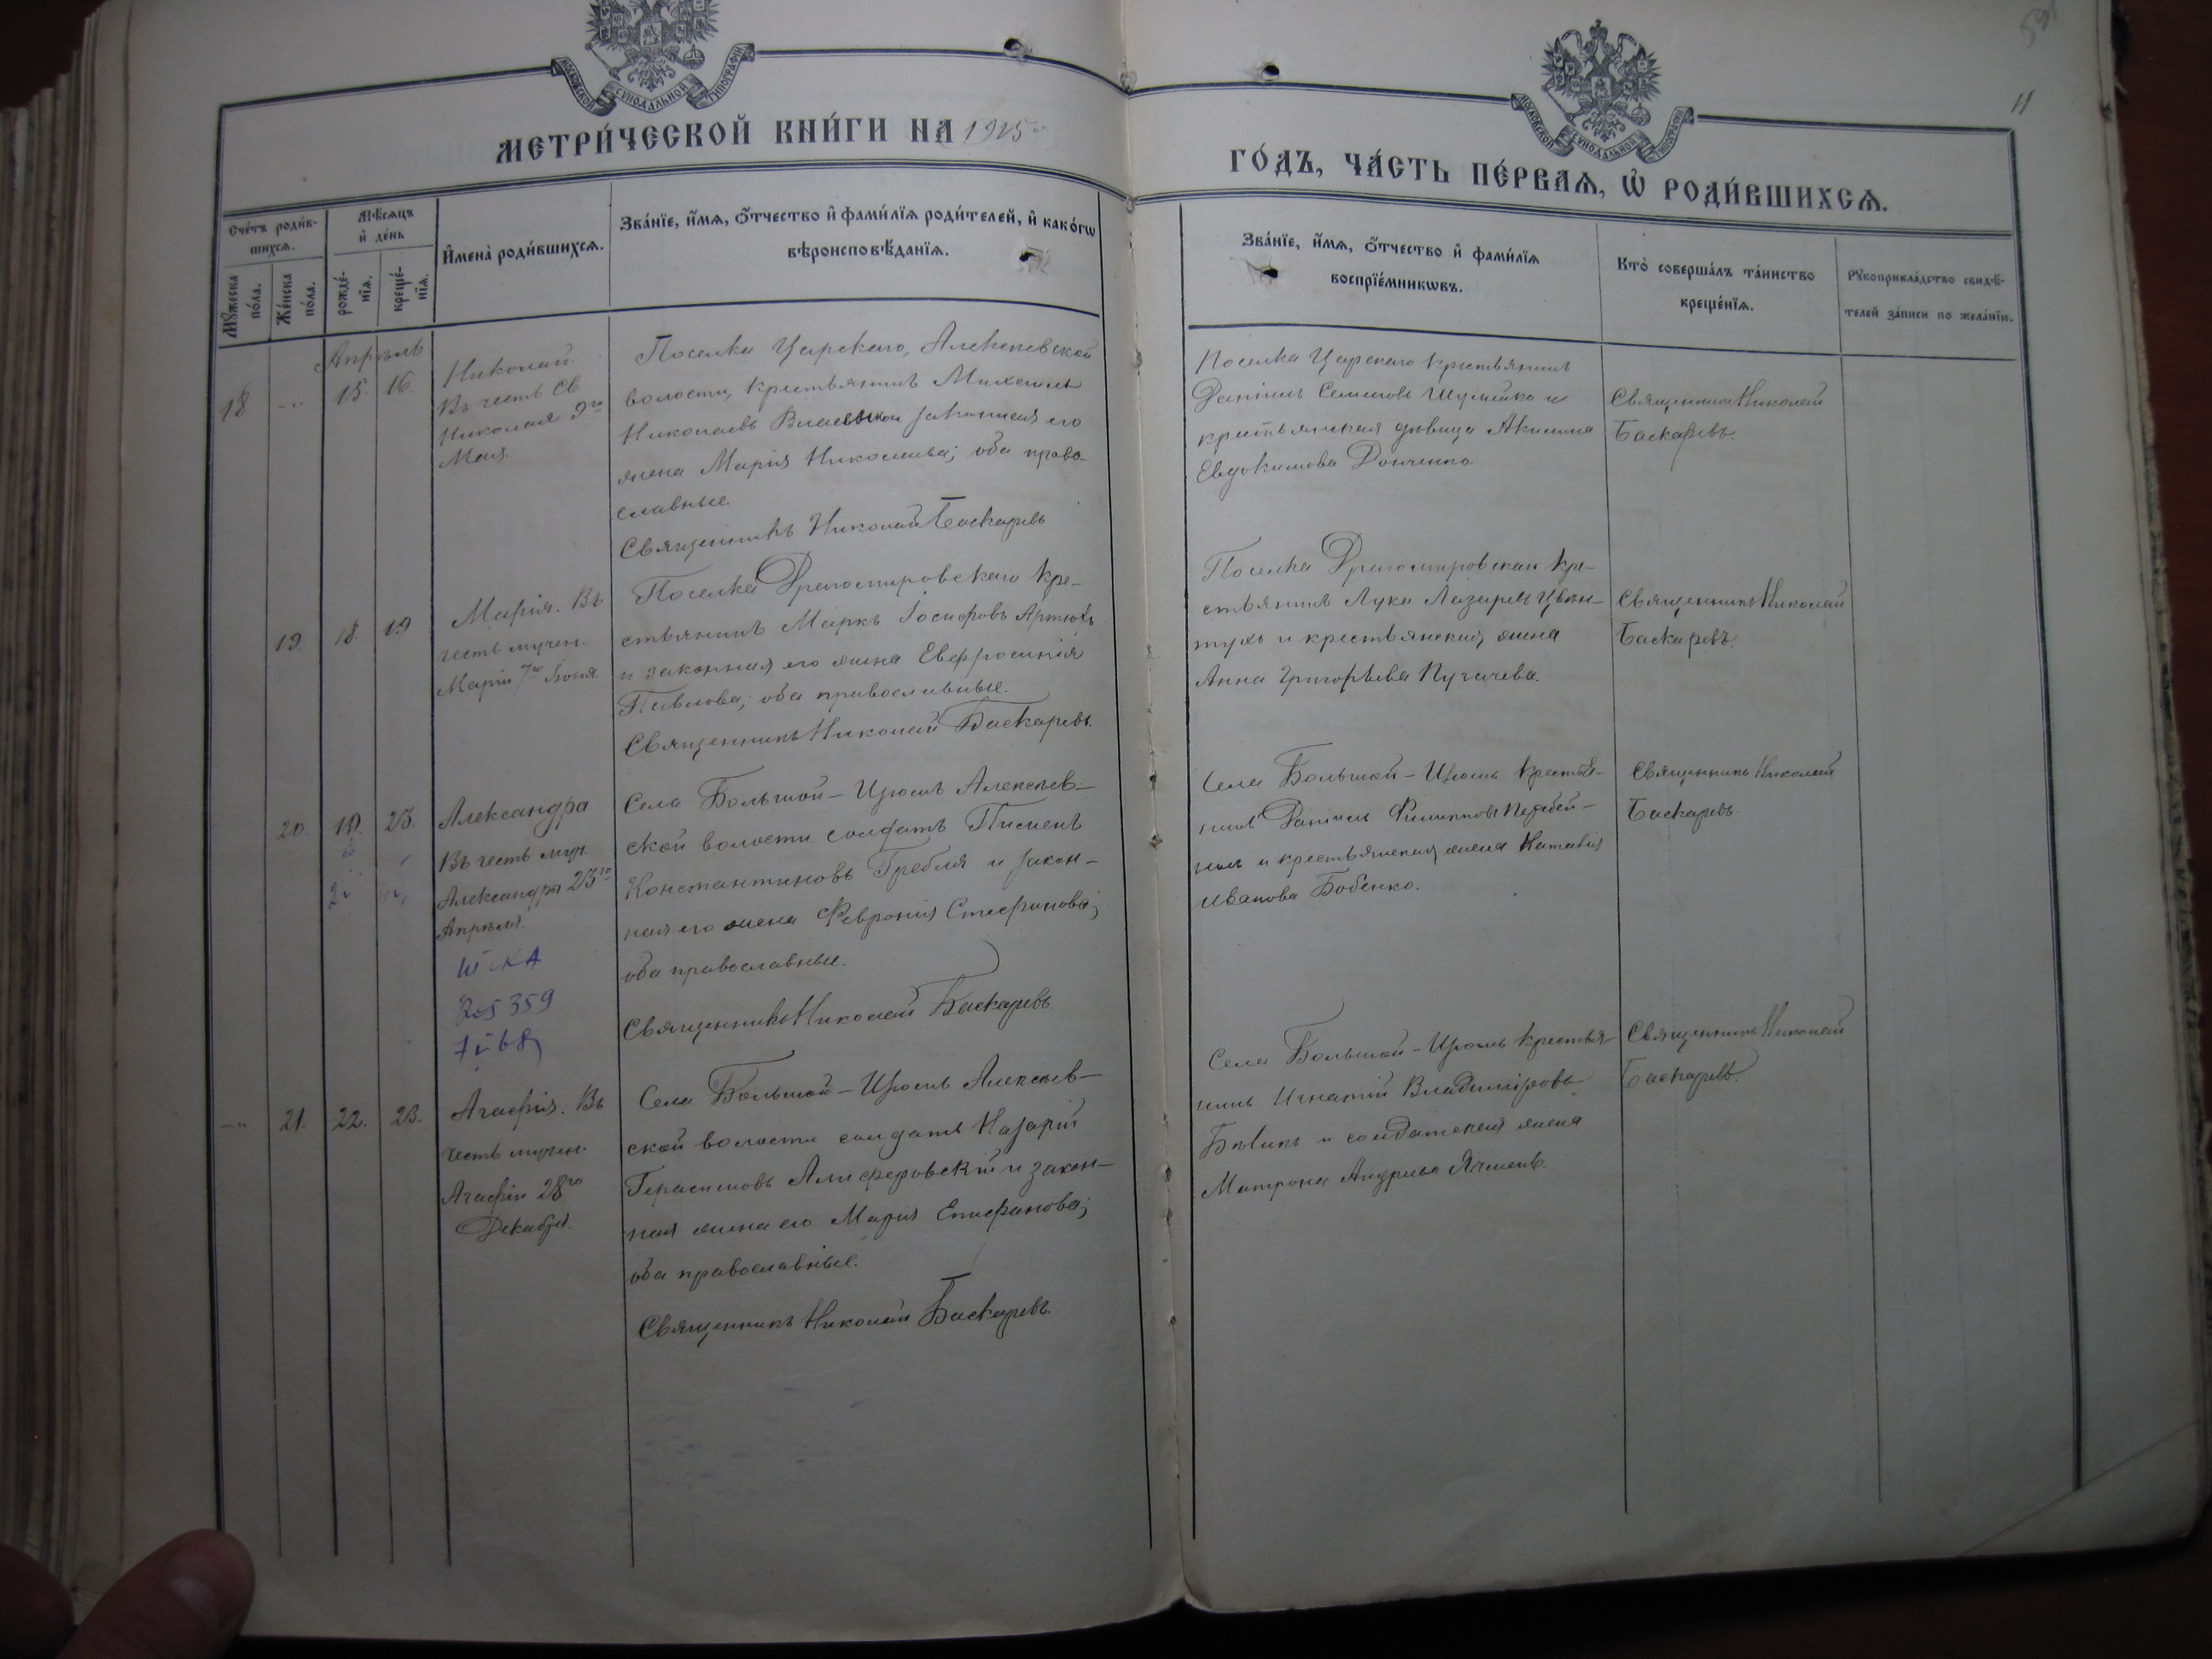 МОСКОВСКОЙ СУНОДАЛЬНОЙ ТИПОГРАФІИ
МОСКОВСКОЙ СУНОДАЛЬНОЙ ТИПОГРАФІИ
11
МЕТРИ́ЧЕСКОЙ КНИ́ГИ НА 1915
ГО́ДЪ, ЧА́СТЬ ПЕ́РВАѦ, Ѡ҆ РОДИ́ВШИХСѦ.
Сче́тъ роди́в-
шихсѧ.
Мѣ́сѧцъ
и҆ де́нь
Мꙋ́жеска по́ла.
Же́нска по́ла.
рожде́-
нїѧ.
креще́-
нїѧ.
И҆мена̀ роди́вшихсѧ.
Зва́нїе, и҆́мѧ, ѻ҆́тчество и҆ фами́лїѧ роди́телей, и҆ како́гѡ
вѣроисповѣ́данїѧ.
Зва́нїе, и҆́мѧ, ѻ҆́тчество и҆ фами́лїѧ
воспрїе́мникѡвъ.
Кто̀ соверша́лъ та́инство
креще́нїѧ.
Рꙋкоприкла́дство свидѣ́-
телей за́писи по жела́нїю.
Апрѣль
18 15. 16.
Николай
Въ честь Св.
Николая 9го
Мая.
Поселка Царскаго, Алексѣевской
волости, крестьянинъ Михаилъ
Николаевъ законная его
жена Марія Николаева; оба право-
славные.
Священникъ Николай Баскаревъ
Поселка Царскаго крестьянинъ
Даніилъ Семеновъ Шулейко и
крестьянская дѣвица Акилина
Евдокимова Донченко
Священникъ Николай
Баскаревъ.
19. 18. 19
Марія. Въ
честь мучен.
Маріи 7го Іюня.
Поселка Драгомировскаго кре-
стьянинъ Маркъ Іосифовъ Артюхъ
и законная его жена Евфросинія
Павлова; оба православные.
Священникъ Николай Баскаревъ.
Поселка Драгомировскаго кре-
стьянинъ Лука Лазаревъ
и крестьянская жена
Анна Григорьева Пугачева.
Священникъ Николай
Баскаревъ.
20. 19. 23.
Александра
Въ честь муч.
Александры 23го
Апрѣля.
359
Села Большой-Ирюмъ Алексѣев-
ской волости солдатъ Пименъ
Константиновъ Гребля и закон-
ная его жена Февронія Стефанова;
оба православные.
Священникъ Николай Баскаревъ.
Села Большой-Ирюмъ крестья-
нинъ Даніилъ Филипповъ
и крестьянская жена Наталія
Иванова Бобенко.
Священникъ Николай
Баскаревъ.
21. 22. 23.
Агафія. Въ
честь мучен.
Агафіи 28го
Декабря.
Села Большой-Ирюмъ Алексѣев-
ской волости солдатъ Назарій
Герасимовъ Алиферовскій и закон-
ная жена его Марія Епифанова;
оба православные.
Священникъ Николай Баскаревъ.
Села Большой-Ирюмъ крестья
нинъ Игнатій Владиміровъ
и солдатская жена
Матрона Андреева Ячмень.
Священникъ Николай
Баскаревъ.